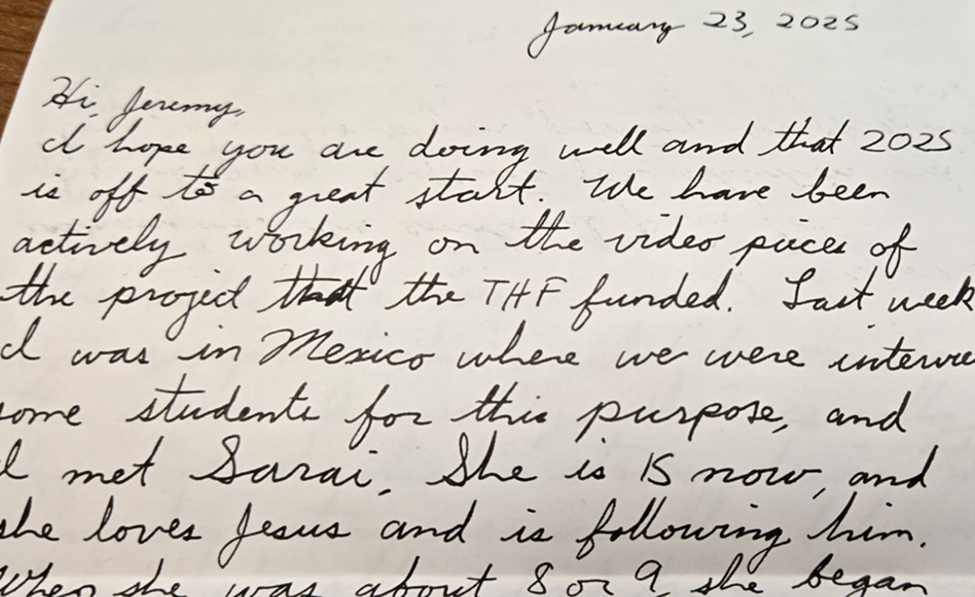 January 23, 2025
Hi, Jeremy,
I hope you are doing well and that 2025
is off to a great start. We have been
actively working on the video pieces of
the project that the THF funded. Last week
I was in Mexico where we were intervie
some students for this purpose, and
I met Sarai. She is 15 now, and
she loves Jesus and is following him.
When she was about 8 or 9, she began